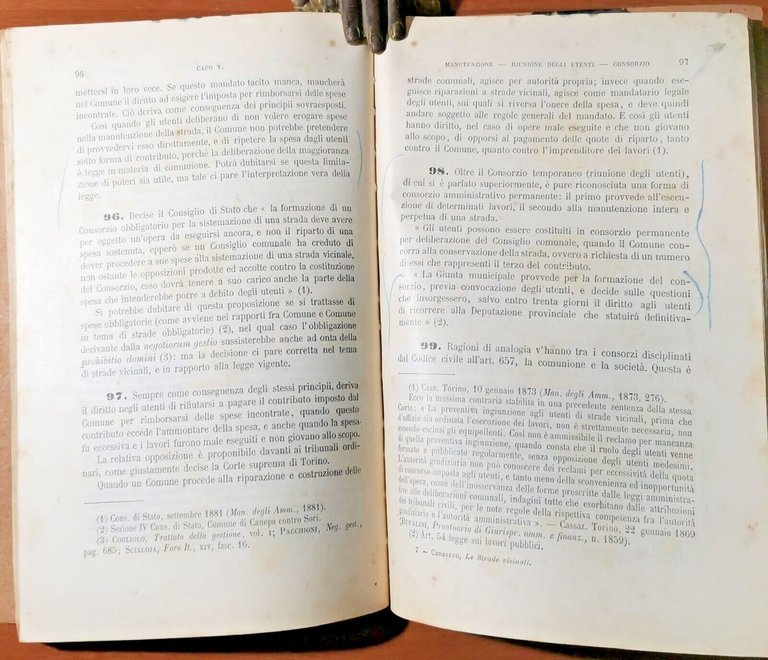 96
CAPO V.
mettersi in loro vece. Se questo mandato tacito manca, mancherà
nel Comune il diritto ad esigere l'imposta per rimborsarsi delle spese
incontrate. Ciò deriva come conseguenza dei principii sovraesposti.
Così quando gli utenti deliberano di non volere erogare spese
nella manutenzione della strada, il Comune non potrebbe pretendere
di provvedervi esso direttamente, e di ripetere la spesa dagli utenti
sotto forma di contributo, perché la deliberazione della maggioranza
è legge in materia di comunione. Potrà dubitarsi se questa limita-
zione di poteri sia utile, ma tale ci pare l'interpretazione vera della
legge.
96. Decise il Consiglio di Stato che « la formazione di un
Consorzio obbligatorio per la sistemazione di una strada deve avere
per oggetto un'opera da eseguirsi ancora, e non il riparto di una
spesa sostenuta, epperò se un Consiglio comunale ha creduto di
dover procedere a sue spese alla sistemazione di una strada vicinale,
non ostante le opposizioni prodotte ed accolte contro la costituzione
del Consorzio, esso dovrà tenere a suo carico anche la parte della
spesa che intenderebbe porre a debito degli utenti » (1).
Si potrebbe dubitare di questa proposizione se si trattasse di
spese obbligatorie (come avviene nei rapporti fra Comune e Comune
in tema di strade obbligatorie) (2), nel qual caso l'obbligazione
derivante dalla negotiorum gestio sussisterebbe anche ad onta della
prohibitio domini (3): ma la decisione ci pare corretta nel tema
di strade vicinali, e in rapporto alla legge vigente.
97. Sempre come conseguenza degli stessi principii, deriva
il diritto negli utenti di rifiutarsi a pagare il contributo imposto dal
Comune per rimborsarsi delle spese incontrate, quando questo
contributo eccede l'ammontare della spesa, e anche quando la spesa
fu eccessiva e i lavori furono male eseguiti e non giovano allo scopo.
La relativa opposizione è proponibile davanti ai tribunali ordi-
nari, come giustamente decise la Corte suprema di Torino.
Quando un Comune procede alla riparazione e costruzione delle
(1) Cons. di Stato, settembre 1881 (Man. degli Amm., 1881).
(2) Sezione IV Cons. di Stato, Comune di Canepa contro Sori.
(3) COGLIOLO, Trattato della gestione, vol. 1; PACCHIONI, Neg. gest.,
pag. 685; SCIALOIA, Foro It., XIV, fasc. 16.
MANUTENZIONE — RIUNIONE DEGLI UTENTI — CONSORZIO
97
strade comunali, agisce per autorità propria; invece quando ese-
guisce riparazioni a strade vicinali, agisce come mandatario legale
degli utenti, sui quali si riversa l'onere della spesa, e deve quindi
andare soggetto alle regole generali del mandato. E così gli utenti
hanno diritto, nel caso di opere male eseguite e che non giovano
allo scopo, di opporsi al pagamento delle quote di riparto, tanto
contro il Comune, quanto contro l'imprenditore dei lavori (1).
98. Oltre il Consorzio temporaneo (riunione degli utenti),
di cui si è parlato superiormente, è pure riconosciuta una forma di
consorzio amministrativo permanente: il primo provvede all'esecu-
zione di determinati lavori, il secondo alla manutenzione intera e
perpetua di una strada.
« Gli utenti possono essere costituiti in consorzio permanente
per deliberazione del Consiglio comunale, quando il Comune con-
corra alla conservazione della strada, ovvero a richiesta di un numero
di essi che rappresenti il terzo del contributo.
« La Giunta municipale provvede per la formazione del con-
sorzio, previa convocazione degli utenti, e decide sulle questioni
che insorgessero, salvo entro trenta giorni il diritto agli utenti
di ricorrere alla Deputazione provinciale che statuirà definitiva-
mente » (2).
99. Ragioni di analogia v'hanno tra i consorzi disciplinati
dal Codice civile all'art. 657, la comunione e la società. Questa è
(1) Cass. Torino, 10 gennaio 1873 (Man. degli Amm., 1873, 276).
Ecco la massima contraria stabilita in una precedente sentenza della stessa
Corte: « La preventiva ingiunzione agli utenti di strade vicinali, prima che
d'ufficio sia ordinata l'esecuzione dei lavori, non è strettamente necessaria, non
essendo esclusi gli equipollenti. Così non è ammissibile il reclamo per mancanza
di quella preventiva ingiunzione, quando consta che il ruolo degli utenti venne
formato e pubblicato regolarmente, senza opposizione degli utenti medesimi.
L'autorità giudiziaria non può conoscere dei reclami per eccessività della quota
di concorso imposta agli utenti, e tanto meno della sconvenienza ed inopportunità
dell'opera, come dell'inosservanza delle forme prescritte dalle leggi amministra-
tive alle deliberazioni comunali, indagini tutte che esorbitano dalle attribuzioni
dei tribunali civili, per le note regole della rispettiva competenza fra l'autorità
giudiziaria e l'autorità amministrativa ». — Cassaz. Torino, 22 gennaio 1869
(BUFALINI, Prontuario di Giurispr. amm. e finanz., n. 1859).
(2) Art. 54 legge sui lavori pubblici.
7 — CERESETO, Le Strade vicinali.